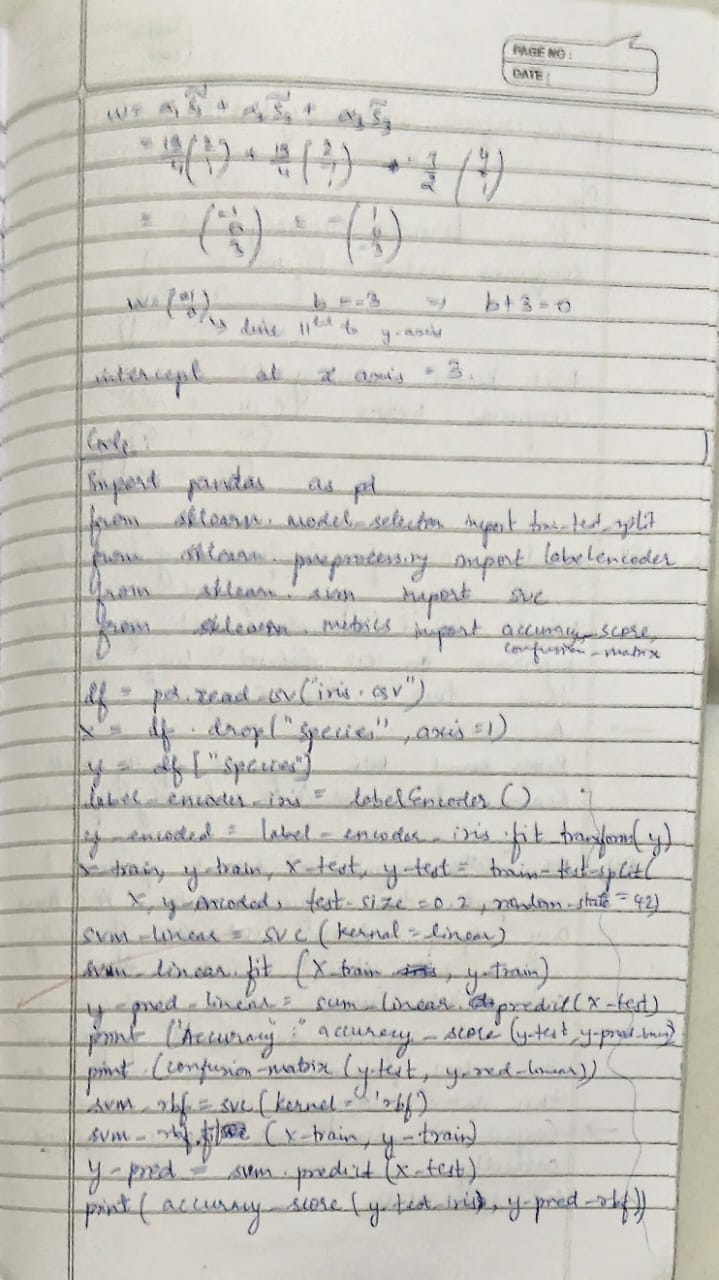 PAGE NO :
DATE :
w = α₁ s̃₁ + α₂ s̃₂ + α₃ s̃₃
b = -3 ⇒ b+3=0
line ||lel to y-axis
intercept at x axis = 3.
Code :
Import pandas as pd
from sklearn. model_selection import train_test_split
from sklearn. preprocessing import labelencoder
from sklearn. svm import svc
from sklearn. metrics import accuracy_score,
confusion_matrix
df = pd.read_csv("iris.csv")
x = df . drop("species", axis=1)
y = df ["species"]
label_encoder_iris = labelEncoder ()
y_encoded = label_encoder_iris.fit_transform(y)
x-train, y-train, x-test, y-test = train-test-split(
X, y-encoded, test-size =0.2, random-state = 42)
svm_linear = svc ( kernel = linear)
svm_linear.fit (X-train , y-train)
y-pred-linear = svm_linear. predict (x-test)
print ("Accuracy :" accuracy_score (y-test, y-pred-linear)
print (confusion-matrix (y-test, y-pred-linear))
svm_rbf = svc (kernel = 'rbf')
svm-rbf.fit (x-train, y-train)
y-pred = svm . predict (x-test)
print ( accuracy_score ( y-test-iris), y-pred-rbf))